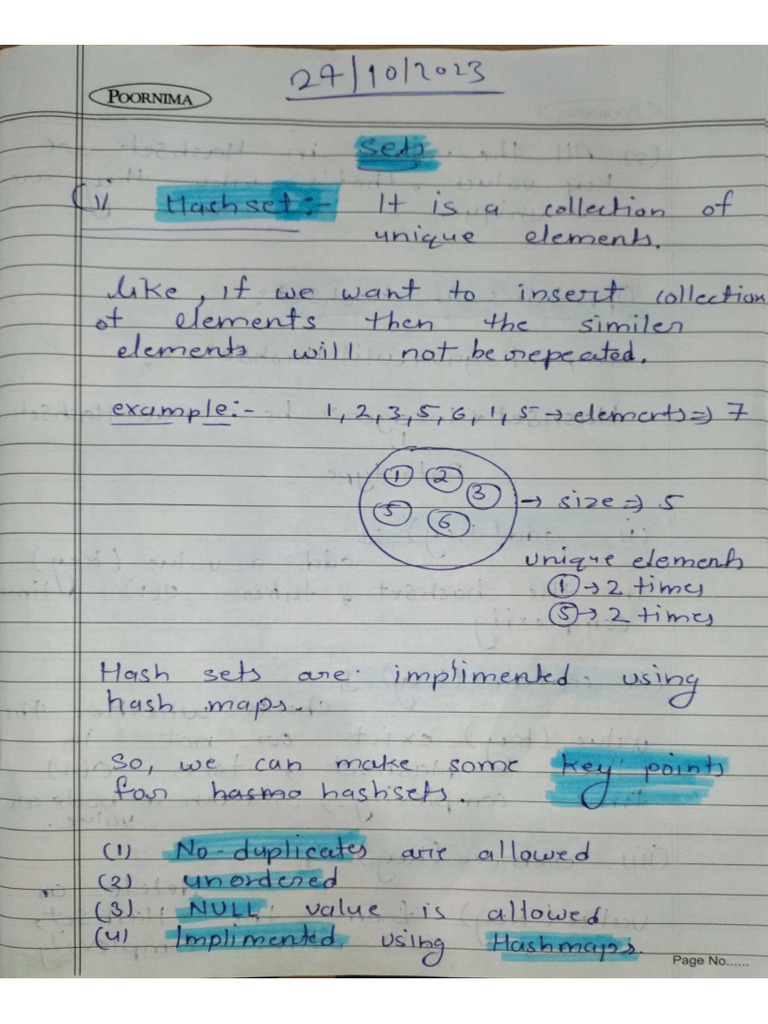 POORNIMA
27/10/2023
Sets
(1) Hashset:- It is a collection of
unique elements.
like, if we want to insert collection
of elements then the similer
elements will not be repeated.
example:- 1, 2, 3, 5, 6, 1, 5 → elements ⇒ 7
1 2 3
5 6
→ size ⇒ 5
unique elements
1 → 2 times
5 → 2 times
Hash sets are implimented using
hash maps.
So, we can make some key points
for hasma hashsets.
(1) No-duplicates are allowed
(2) unordered
(3) NULL value is allowed
(4) Implimented using Hashmaps.
Page No......